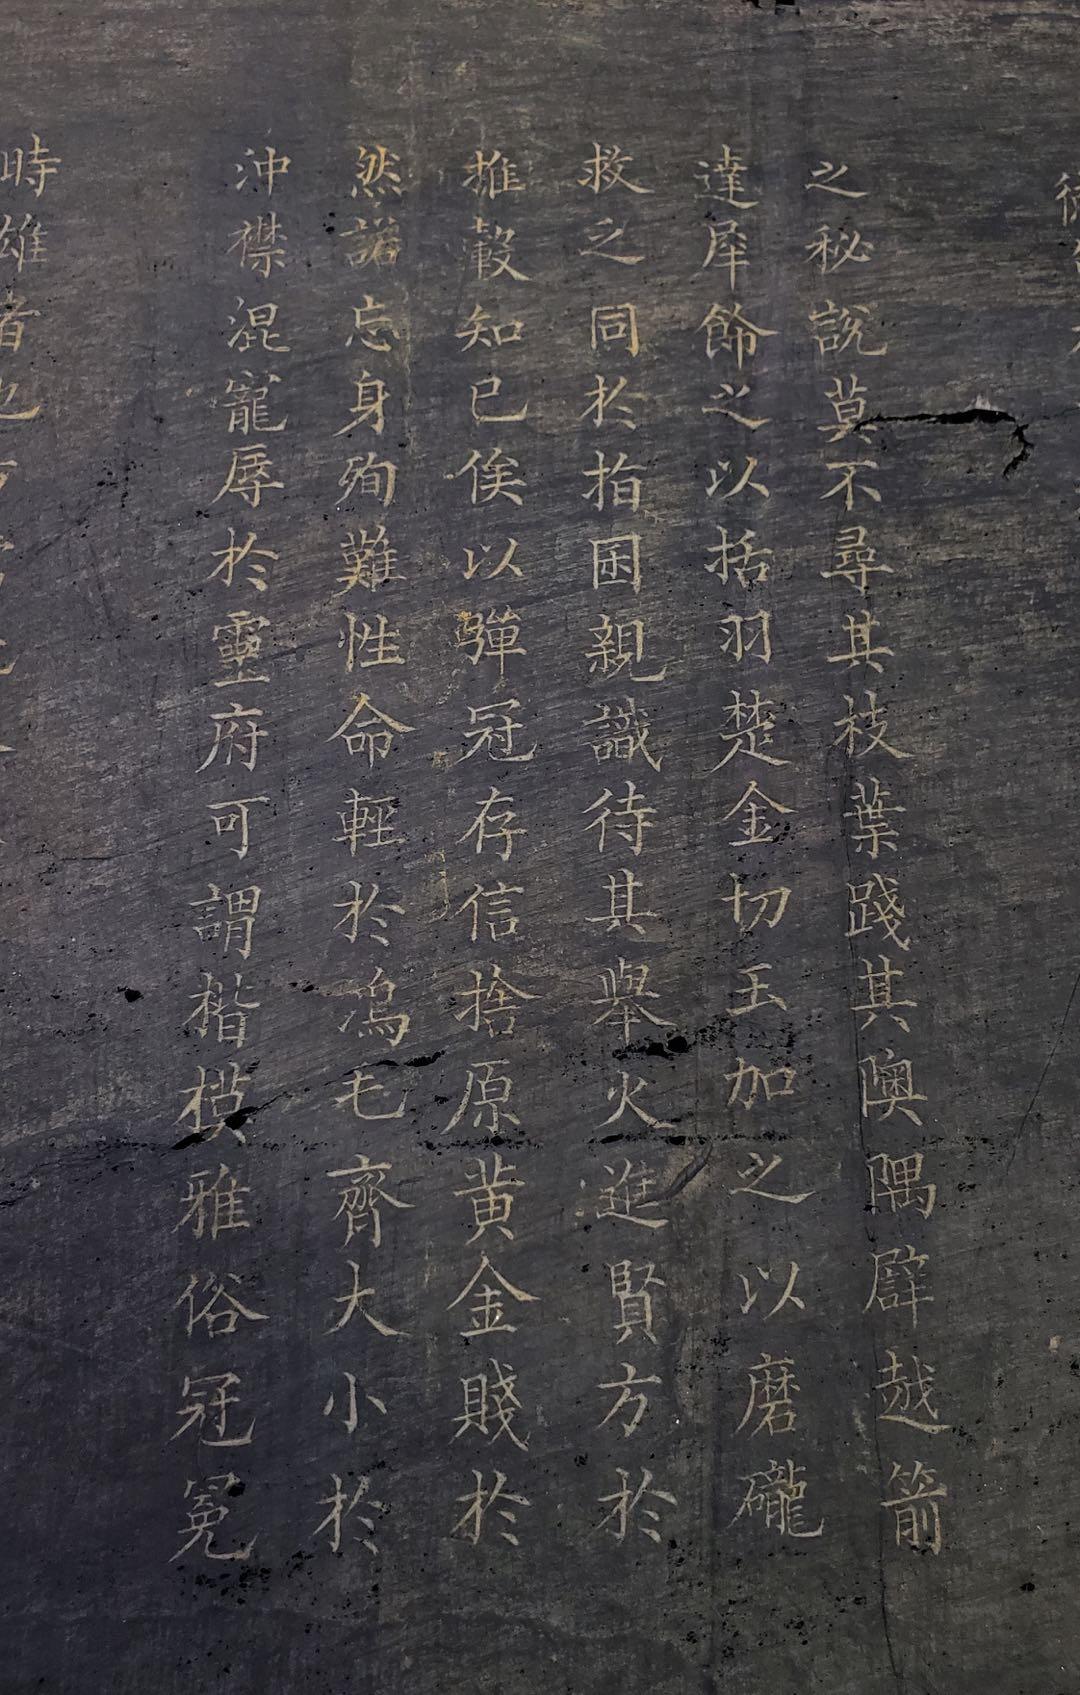 之秘說莫不尋其枝葉踐其隩隅辟越箭
達犀飾之以括羽楚金切玉加之以磨礲
救之同於指囷親識待其舉火進賢方於
推轂知已俟以彈冠存信捨原黄金賤於
然諾忘身殉難性命輕於鴻毛齊大小於
沖襟混寵辱於靈府可謂楷模雅俗冠冕
時雄者也